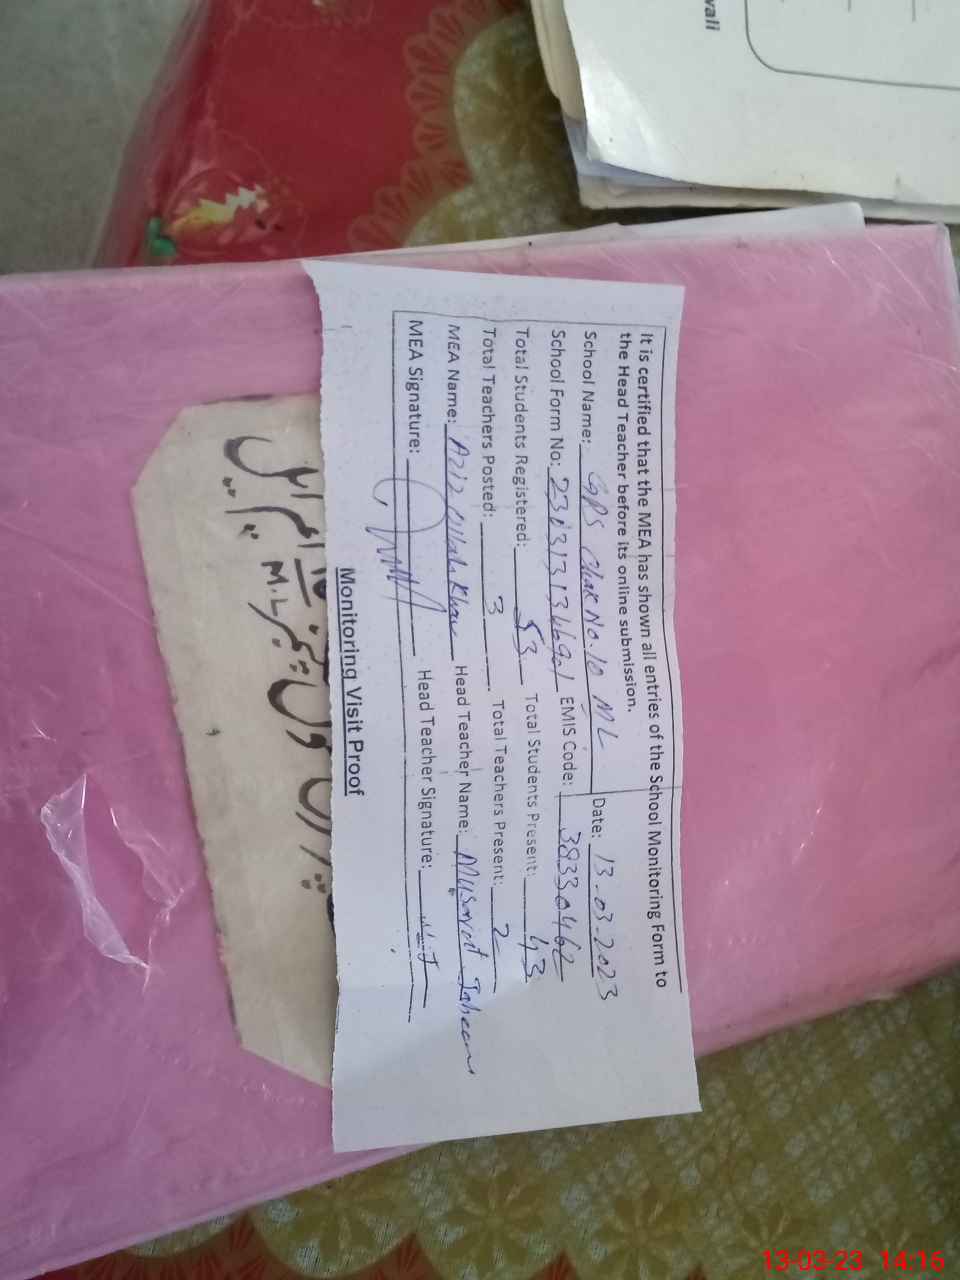 vali
It is certified that the MEA has shown all entries of the School Monitoring Form to
the Head Teacher before its online submission.
School Name: GPS Chak No. 10 ML Date: 13-03-2023
School Form No: EMIS Code: 38330462
Total Students Registered: 53 Total Students Present: 43
Total Teachers Posted: 3 Total Teachers Present: 2
MEA Name: Aziz Ullah Khan Head Teacher Name: Musarat Jabeen
MEA Signature: Head Teacher Signature:
Monitoring Visit Proof
M.L
13-03-23 14:16